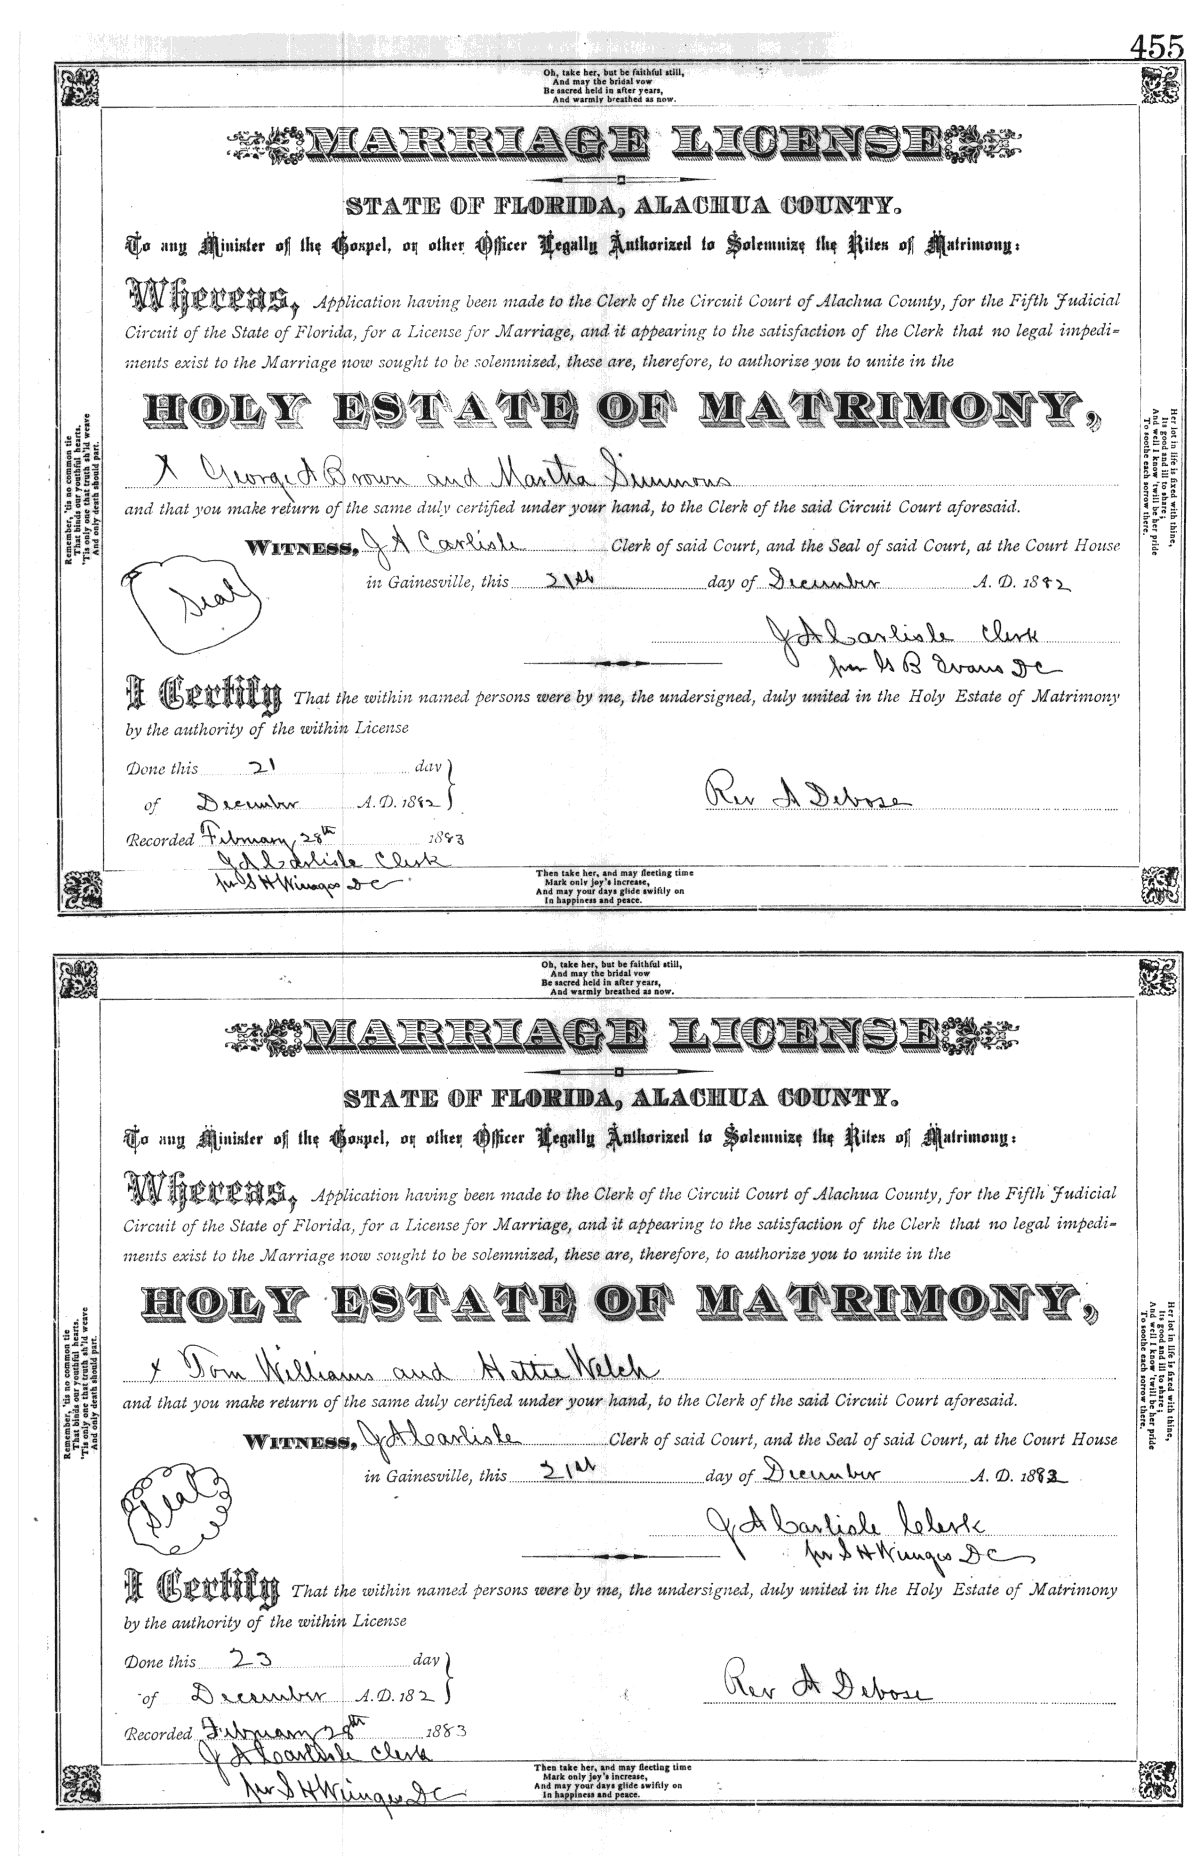 455
Oh, take her, but be faithful still,
And may the bridal vow
Be sacred held in after years,
And warmly breathed as now.
MARRIAGE LICENSE
STATE OF FLORIDA, ALACHUA COUNTY.
To any Minister of the Gospel, or other Officer Legally Authorized to Solemnize the Rites of Matrimony:
Whereas, Application having been made to the Clerk of the Circuit Court of Alachua County, for the Fifth Judicial
Circuit of the State of Florida, for a License for Marriage, and it appearing to the satisfaction of the Clerk that no legal impedi-
ments exist to the Marriage now sought to be solemnized, these are, therefore, to authorize you to unite in the
HOLY ESTATE OF MATRIMONY,
X George A Brown and Martha Simmons
and that you make return of the same duly certified under your hand, to the Clerk of the said Circuit Court aforesaid.
WITNESS, J A Carlisle Clerk of said Court, and the Seal of said Court, at the Court House
Seal
in Gainesville, this 21st day of December A. D. 1882
J A Carlisle Clerk
per G B Evans DC
I Certify That the within named persons were by me, the undersigned, duly united in the Holy Estate of Matrimony
by the authority of the within License
Done this 21 day
of December A. D. 1882
Rev A Debose
Recorded February 28th 1883
J A Carlisle Clerk
per S H Wienges DC
Remember, 'tis no common tie
That binds our youthful hearts.
'Tis only one that truth sh'ld weave
And only death should part.
Her lot in life is fixed with thine,
Its good and ill to share;
And well I know 'twill be her pride
To soothe each sorrow there.
Then take her, and may fleeting time
Mark only joy's increase,
And may your days glide swiftly on
In happiness and peace.
Oh, take her, but be faithful still,
And may the bridal vow
Be sacred held in after years,
And warmly breathed as now.
MARRIAGE LICENSE
STATE OF FLORIDA, ALACHUA COUNTY.
To any Minister of the Gospel, or other Officer Legally Authorized to Solemnize the Rites of Matrimony:
Whereas, Application having been made to the Clerk of the Circuit Court of Alachua County, for the Fifth Judicial
Circuit of the State of Florida, for a License for Marriage, and it appearing to the satisfaction of the Clerk that no legal impedi-
ments exist to the Marriage now sought to be solemnized, these are, therefore, to authorize you to unite in the
HOLY ESTATE OF MATRIMONY,
x Tom Williams and Hettie Welch
and that you make return of the same duly certified under your hand, to the Clerk of the said Circuit Court aforesaid.
WITNESS, J A Carlisle Clerk of said Court, and the Seal of said Court, at the Court House
Seal
in Gainesville, this 21st day of December A. D. 1882
J A Carlisle Clerk
per S H Wienges DC
I Certify That the within named persons were by me, the undersigned, duly united in the Holy Estate of Matrimony
by the authority of the within License
Done this 23 day
of December A. D. 182
Rev A Debose
Recorded February 28th 1883
J A Carlisle Clerk
per S H Wienges DC
Remember, 'tis no common tie
That binds our youthful hearts.
'Tis only one that truth sh'ld weave
And only death should part.
Her lot in life is fixed with thine,
Its good and ill to share;
And well I know 'twill be her pride
To soothe each sorrow there.
Then take her, and may fleeting time
Mark only joy's increase,
And may your days glide swiftly on
In happiness and peace.